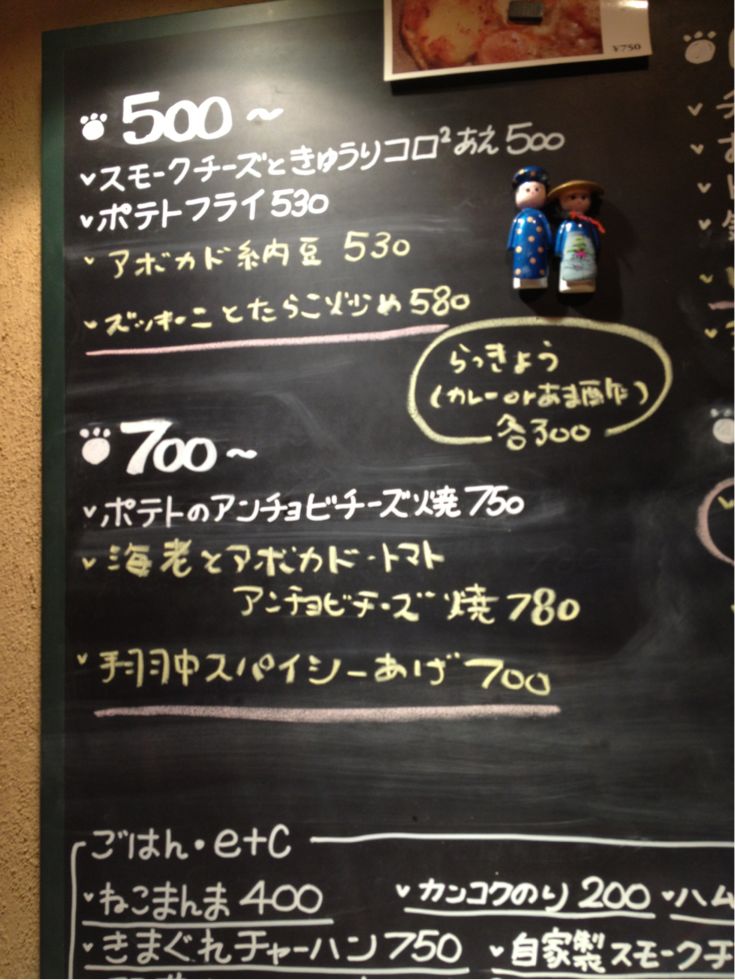 ¥750
500〜
スモークチーズときゅうりコロ²あえ 500
ポテトフライ 530
アボカド納豆 530
ズッキーニとたらこ炒め 580
らっきょう
(カレーorあま酉作)
各300
700〜
ポテトのアンチョビチーズ焼 750
海老とアボカド・トマト
アンチョビチーズ焼 780
手羽中スパイシーあげ 700
ごはん・etc
ねこまんま 400
カンコクのり 200
ハム
きまぐれチャーハン 750
自家製スモークチ